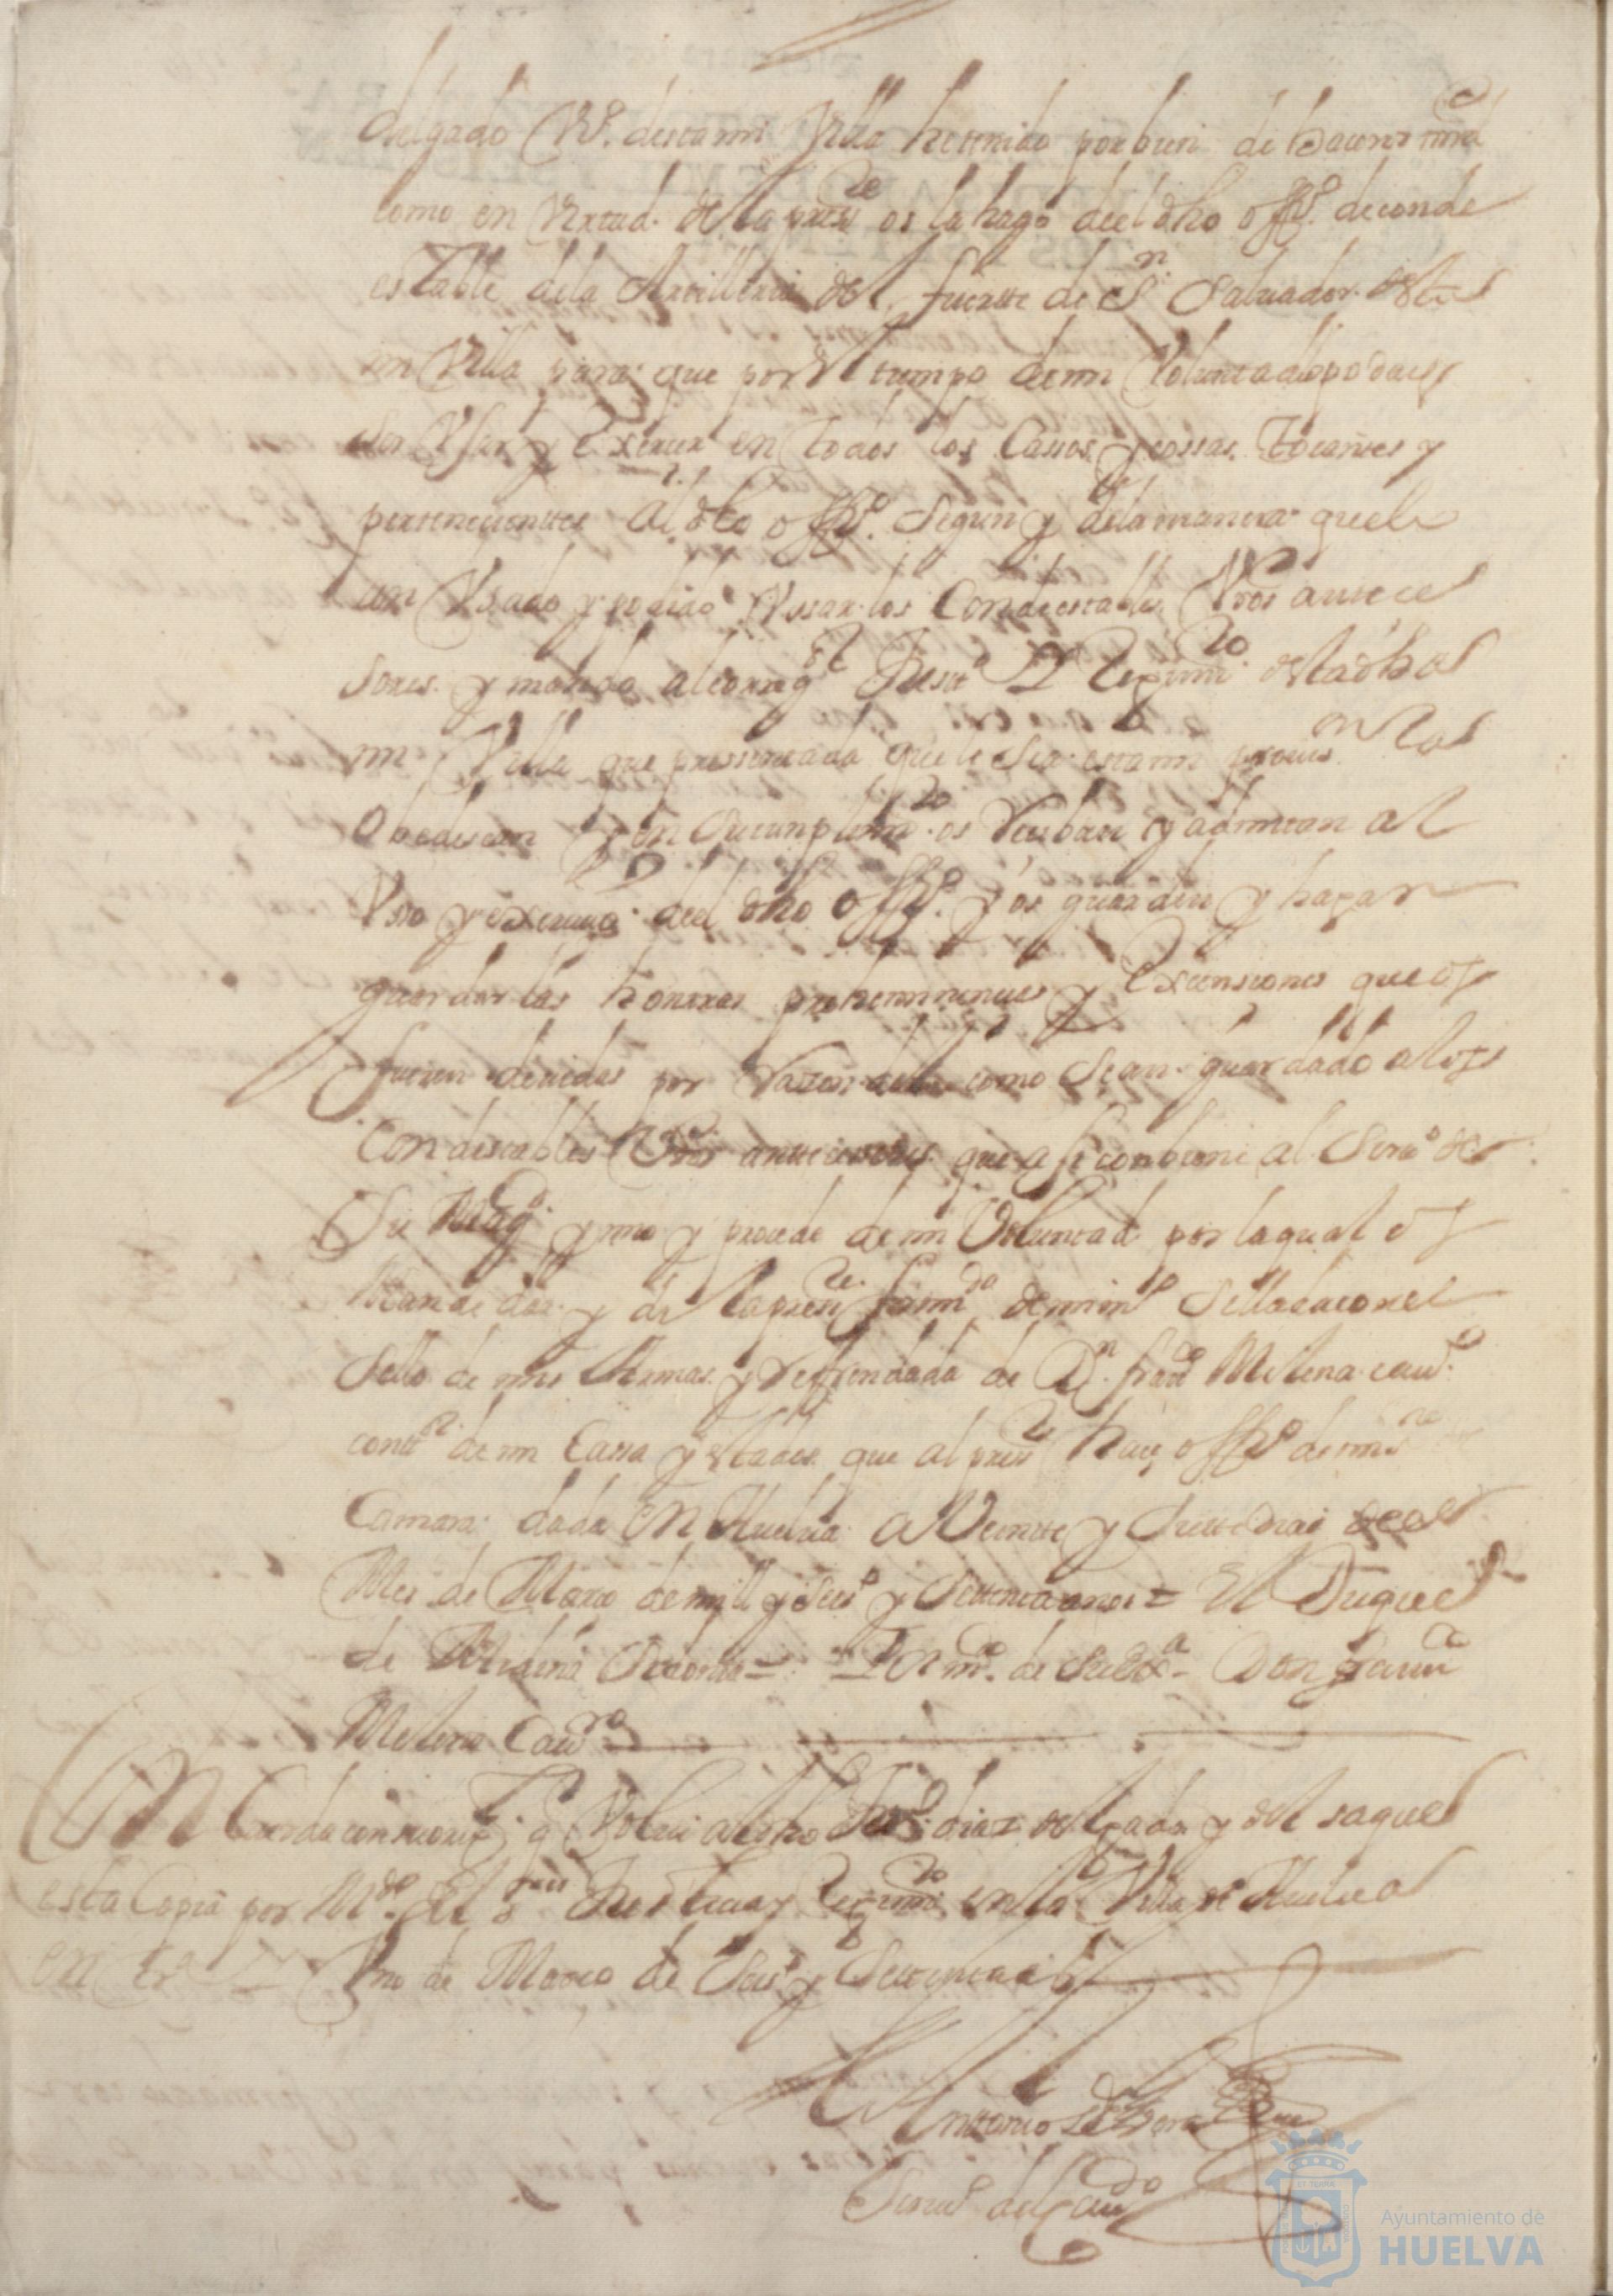 delgado Vº. desta mi Villa he tenido por bien de hacer mrd
como en Virtud de la preste os la hago del dho offº. de conde
estable de la Artilleria del fuerte de Sn Saluador desta
mi Villa para que por el tiempo de mi Voluntad podais
ser Vsar y Exercer en todos los Cassos y cossas Tocantes y
pertenecienttes Al dho offº. Segun y de la manera que la
an Vsado y podido Vssar los Condestables Vros antece
sores y mando al correg Justª Y Reximto desta dha
mi Villa que pressentada que le sea esta mi prouisn Los
Obedescan y en Su cumplimto os Reciban y admitan al
Vso y exercicio del dho offº. y os guarden y hagan
guardar las honrras preheminencias y Excensiones que os
fueren deuidas por Racon dello como se an guardado a los
Condestables Vros anttecesores que assi conbiene al Seruº de
Su Magd. y mio y procede de mi Voluntad por la qual os
Mande dar y di la preste firmda de mi mno Sellada con el
Sello de mis Armas y Refrendada de Dn. franco Milena cauº.
contr de mi Cassa y estados que al preste hace offº de mi
Camara dada En Huelua A Veintte y Siette dias del
Mes de Março de mill y seisº y Settenta anos = El Duque
de Medina Sidonia = Por mdo. de Su Exa - Don franco
Milena Cauro
Concuerda con su orixl q Volui al dho Juº diaz delgado y del saque
esta Copia por Mdo. de los Sres Justicia y Reximto en la Villa de Huelua
en trª Y Vno de Março de Seisº y Settenta as
Anttonio de
Scriuº del Caudo
Ayuntamiento de
HUELVA